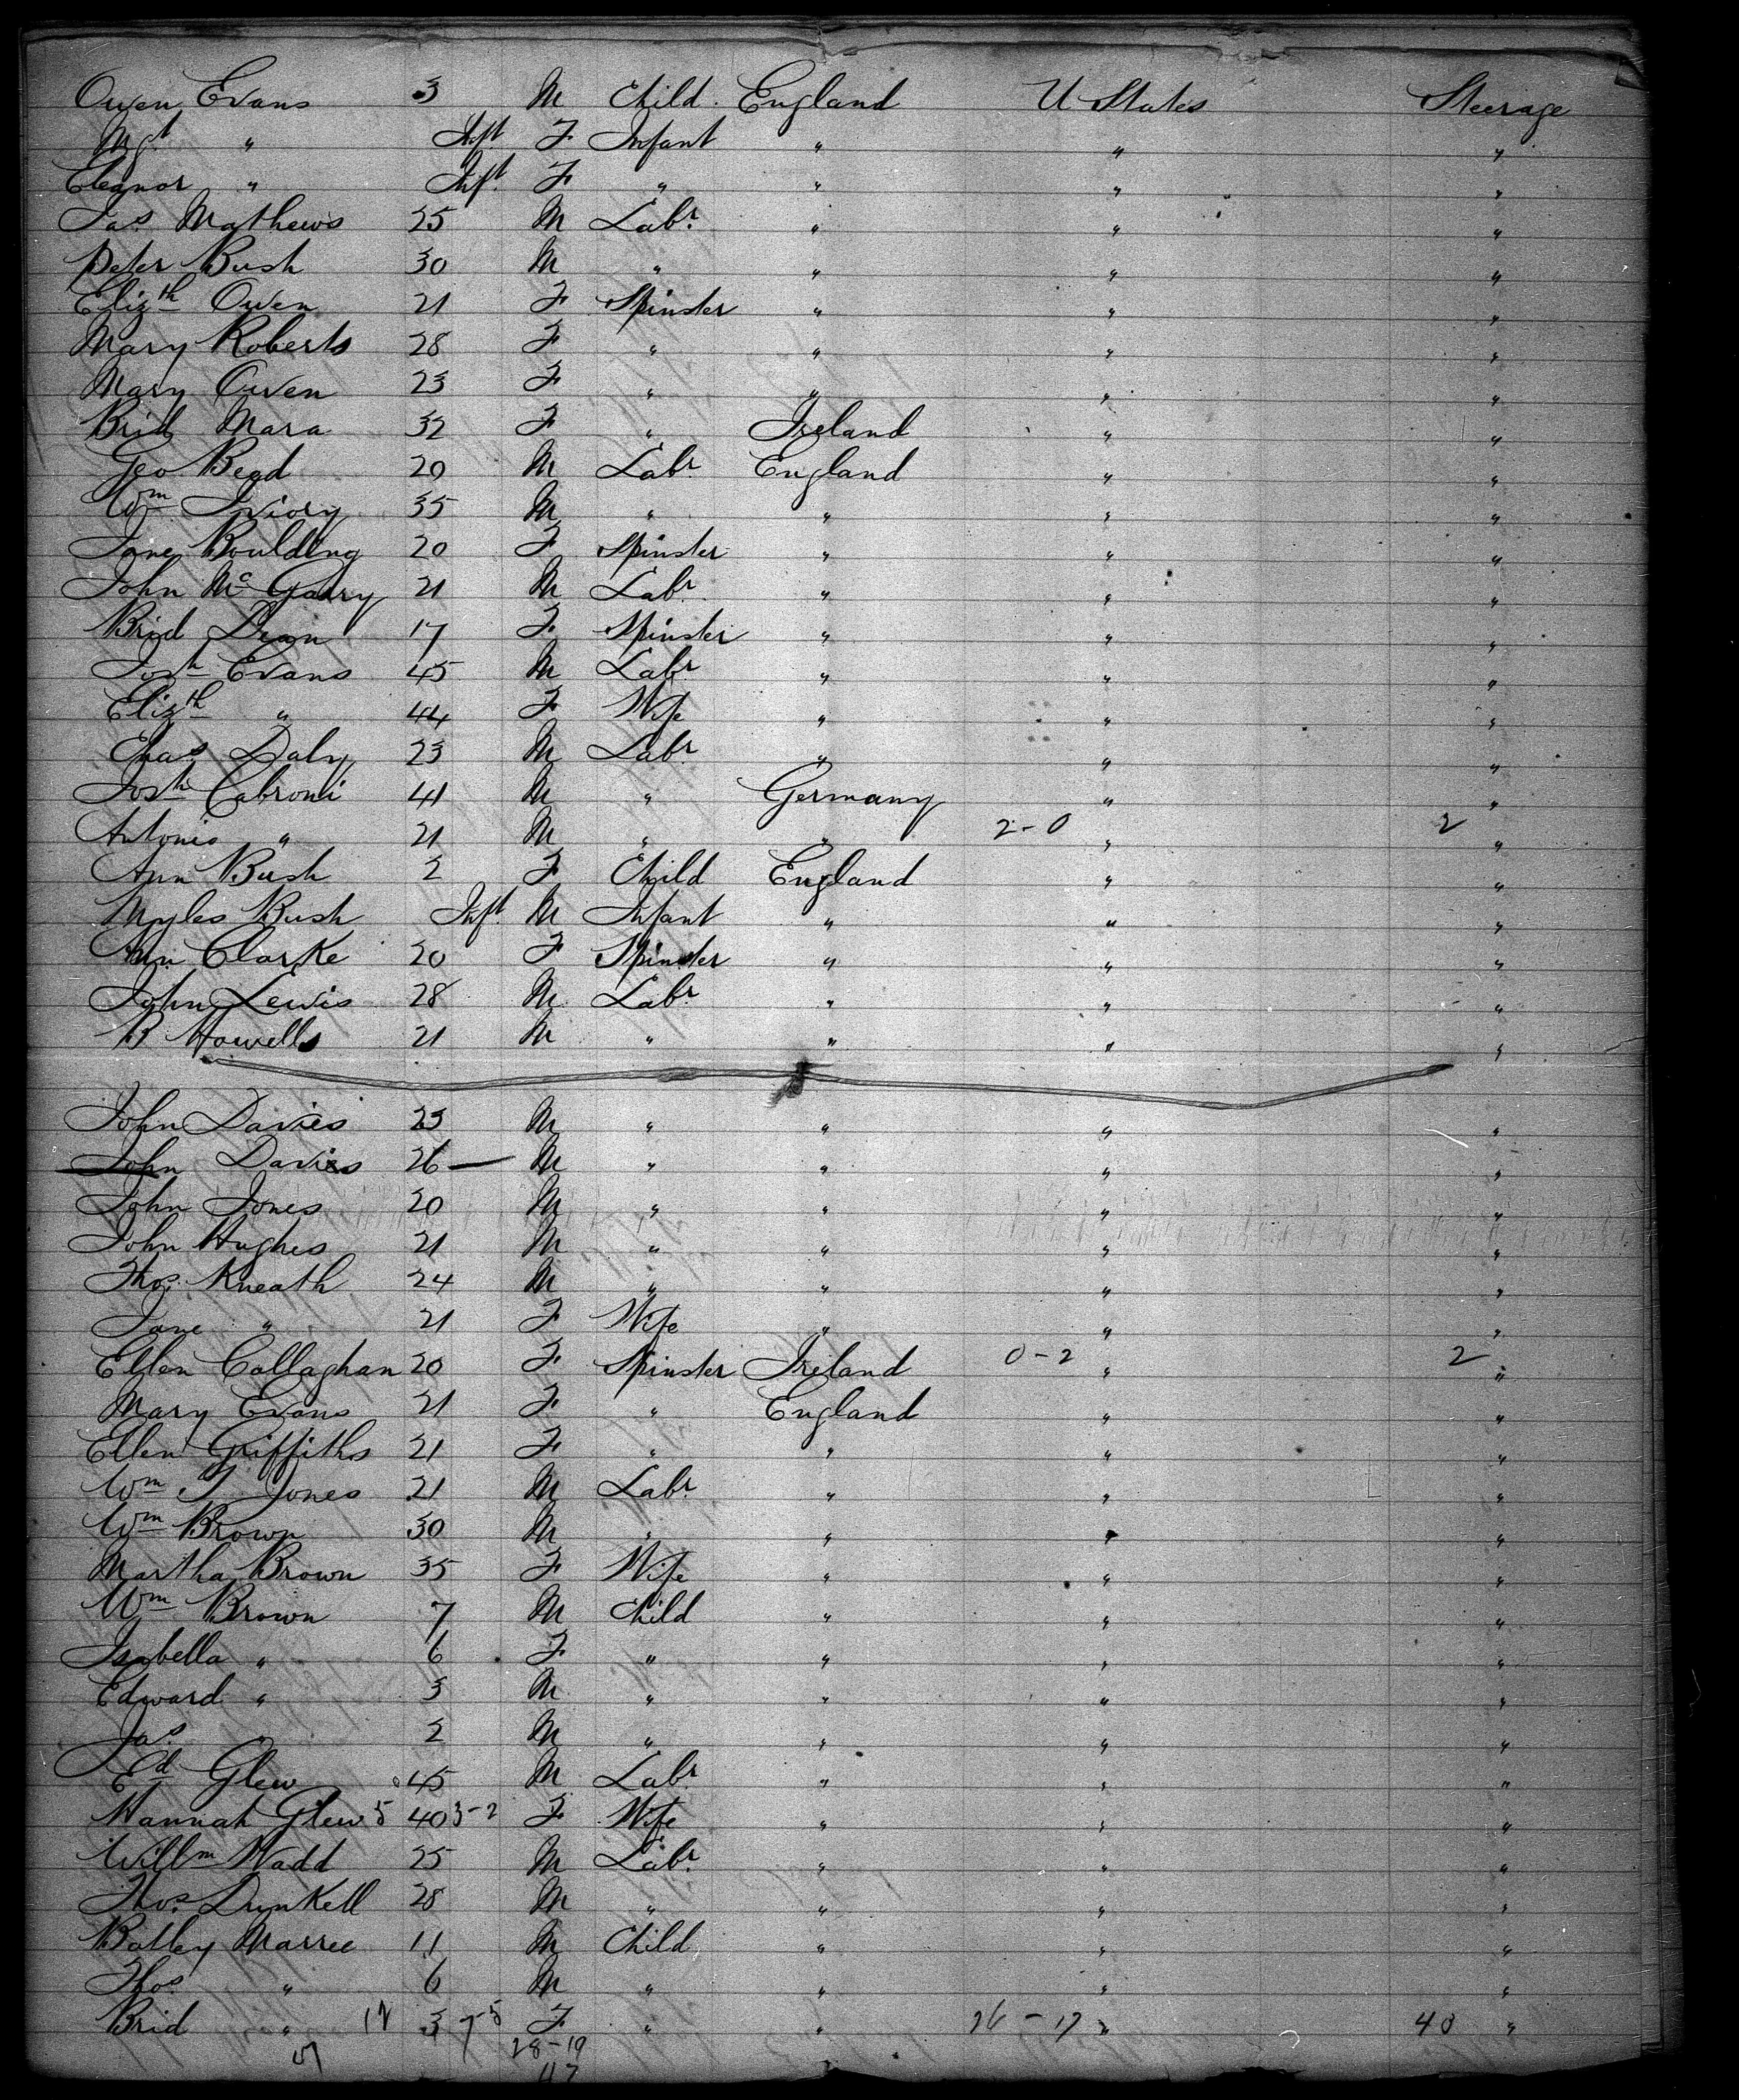 Owen Evans 3 M Child England U States Steerage
Mgt " Inft F Infant " " "
Eleanor " Inft F " " " "
Jas Mathews 25 M Labr " " "
Peter Bush 30 M " " " "
Elizth Owen 21 F Spinster " " "
Mary Roberts 28 F " " " "
Mary Owen 23 F " " " "
Brid Mara 32 F " Ireland " "
Geo Bead 20 M Labr England " "
Wm Ivory 35 M " " " "
Jane Boulding 20 F Spinster " " "
John Mc Garry 21 M Labr " " "
Brid Dean 17 F Spinster " " "
Josh Evans 45 M Labr " " "
Elizth " 44 F Wife " " "
Chas Daly 23 M Labr " " "
Josh Cabroni 41 M " Germany " "
Antonio " 21 M " " 2-0 " 2 "
Ann Bush 2 F Child England " "
Myles Bush Inft M Infant " " "
Ann Clarke 20 F Spinster " " "
John Lewis 28 M Labr " " "
B Howells 21 M " " " "
John Davies 23 M " " " "
John Davies 26 M " " " "
John Jones 20 M " " " "
John Hughes 21 M " " " "
Thos Kneath 24 M " " " "
Jane " 21 F Wife " " "
Ellen Callaghan 20 F Spinster Ireland 0-2 " 2 "
Mary Evans 21 F " England " "
Ellen Griffiths 21 F " " " "
Wm T Jones 21 M Labr " " "
Wm Brown 30 M " " " "
Martha Brown 35 F Wife " " "
Wm Brown 7 M Child " " "
Isabella " 6 F " " " "
Edward " 3 M " " " "
Jas " 2 M " " " "
Ed Glew 45 M Labr " " "
Hannah Glew 5 40 3-2 F Wife " " "
Willm Wadd 25 M Labr " " "
Thos Dunkell 28 M " " " "
Batley Marree 11 M Child " " "
Thos " 6 M " " " "
Brid " 12 3 7-5 F " " 26-17 " 43 "
28-19